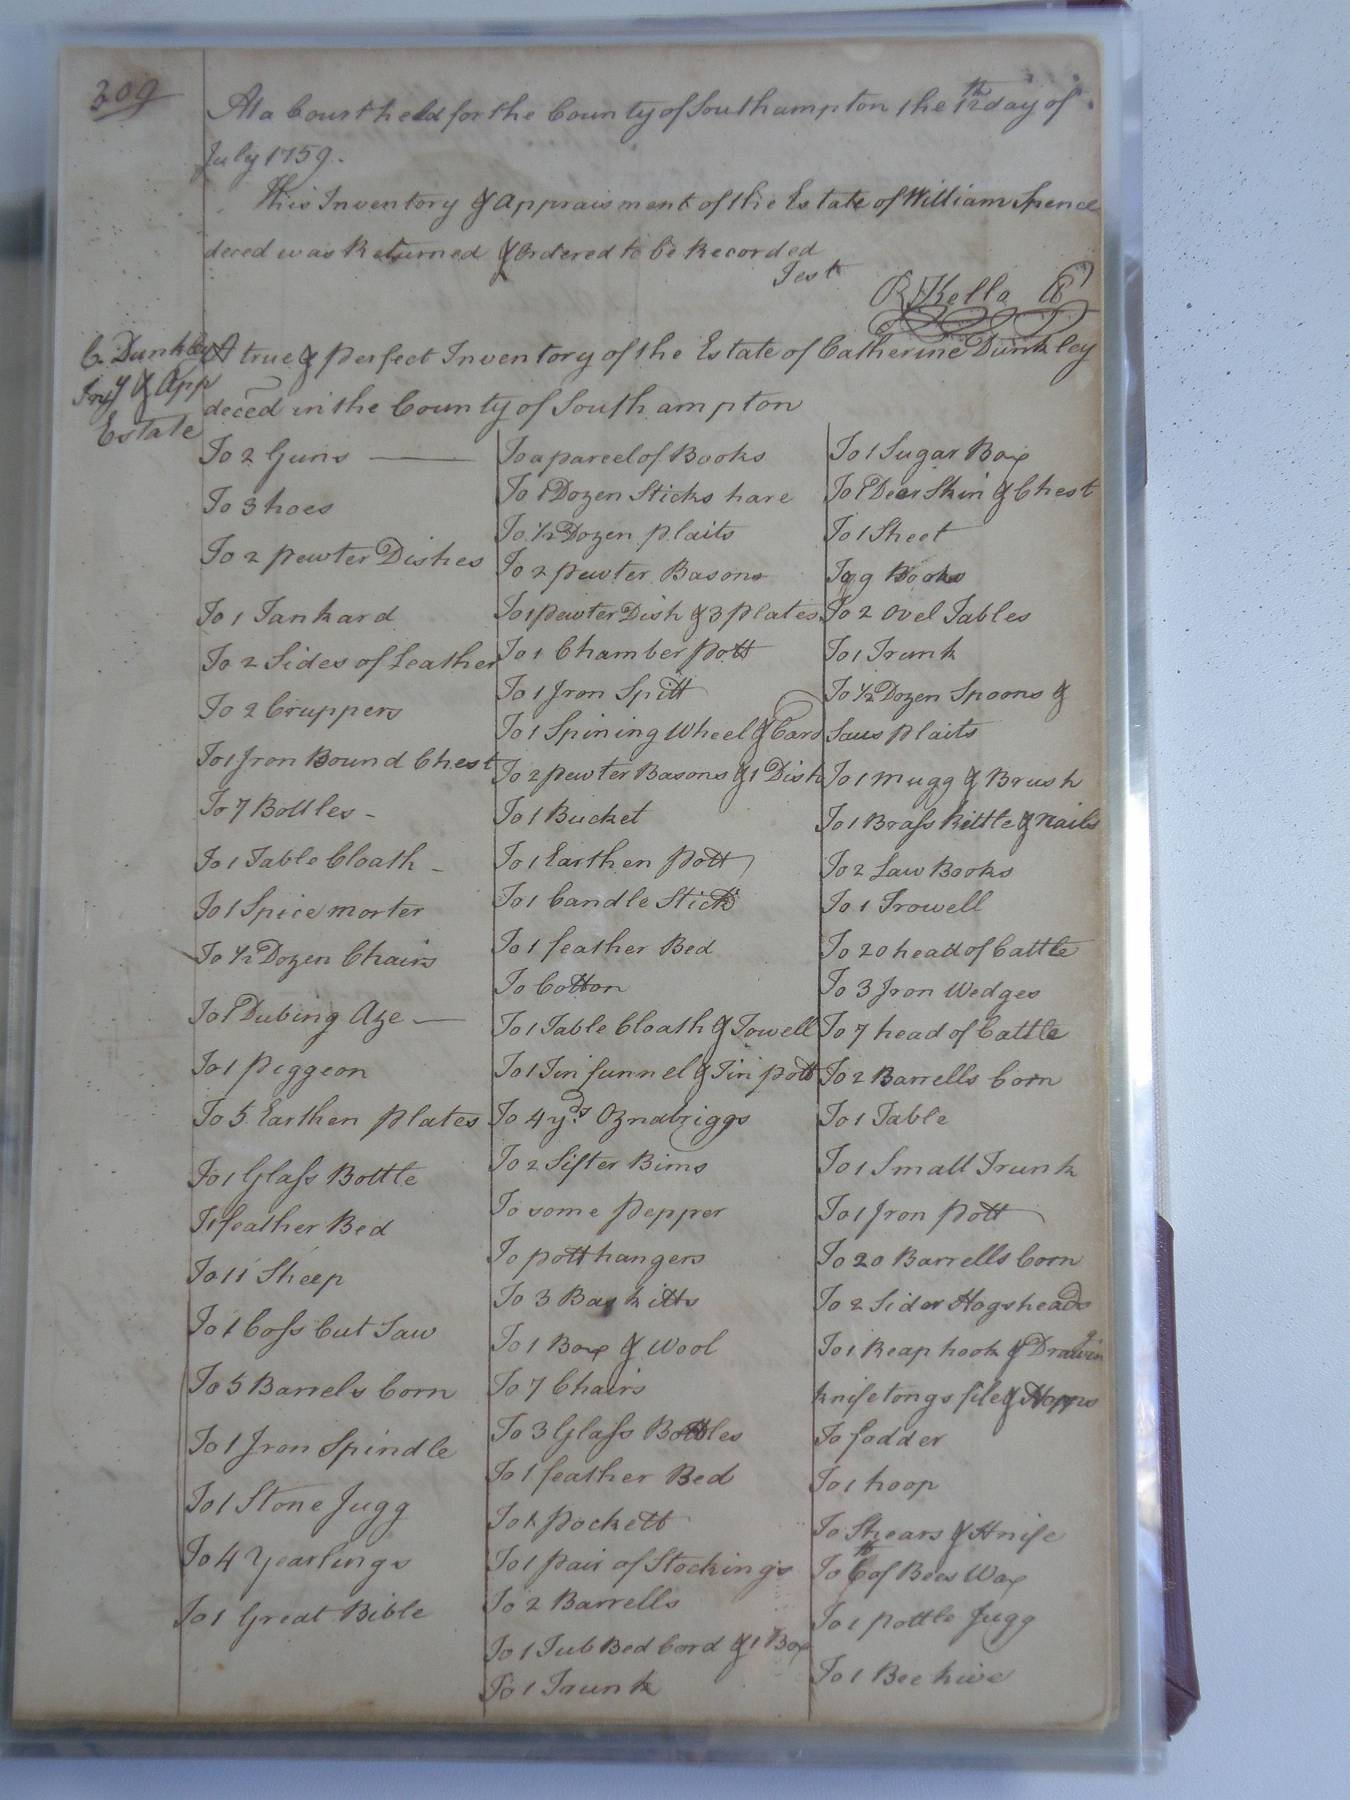 309
At a Court held for the County of Southampton the 12th day of
July 1759.
This Inventory & Appraisment of the Estate of William Spence
deced was Returned & Ordered to be Recorded
Test
R Kello
C. Dunkley
Invy & App
Estate
A true & perfect Inventory of the Estate of Catherine Dunkley
deced in the County of Southampton
To 2 Guns
To 3 hoes
To 2 pewter Dishes
To 1 Tankard
To 2 Sides of Leather
To 2 Cruppers
To 1 Iron Bound Chest
To 7 Bottles -
To 1 Table Cloath -
To 1 Spice morter
To 1/2 Dozen Chairs
To 1 Dubing Axe
To 1 Peggeon
To 5 Earthen Plates
To 1 Glass Bottle
To 1 feather Bed
To 11 Sheep
To 1 Coss Cut Saw
To 5 Barrels Corn
To 1 Iron Spindle
To 1 Stone Jugg
To 4 Yearlings
To 1 Great Bible
To a parcel of Books
To 1 Dozen Sticks hare
To 1/2 Dozen plaits
To 2 pewter Basons
To 1 pewter Dish & 3 plates
To 1 Chamber pott
To 1 Iron Spitt
To 1 Spining Wheel & Card
To 2 pewter Basons & 1 Dish
To 1 Bucket
To 1 Earthen pott
To 1 Candle Stick
To 1 feather Bed
To Cotton
To 1 Table Cloath & Towell
To 1 Tin funnel & Tin pott
To 4 yds Oznabriggs
To 2 Sifter Bims
To some Pepper
To pott hangers
To 3 Baskitts
To 1 Box & Wool
To 7 Chairs
To 3 Glass Bottles
To 1 feather Bed
To 1 Pockett
To 1 pair of Stockings
To 2 Barrells
To 1 Tub Bed Cord & 1 Box
To 1 Trunk
To 1 Sugar Box
To 1 Deer Skin & Chest
To 1 Sheet
To 9 Books
To 2 Ovel Tables
To 1 Trunk
To 1/2 Dozen Spoons &
Saus plaits
To 1 Mugg & Brush
To 1 Brass Kittle & Nails
To 2 Law Books
To 1 Trowell
To 20 head of Cattle
To 3 Iron Wedges
To 7 head of Cattle
To 2 Barrells Corn
To 1 Table
To 1 Small Trunk
To 1 Iron Pott
To 20 Barrells Corn
To 2 Sider Hogsheads
To 1 Reap hook & Drawing
knife tongs file &
To fodder
To 1 hoop
To Shears & Knife
To 6 lb of Bees Wax
To 1 pottle Jugg
To 1 Bee hive